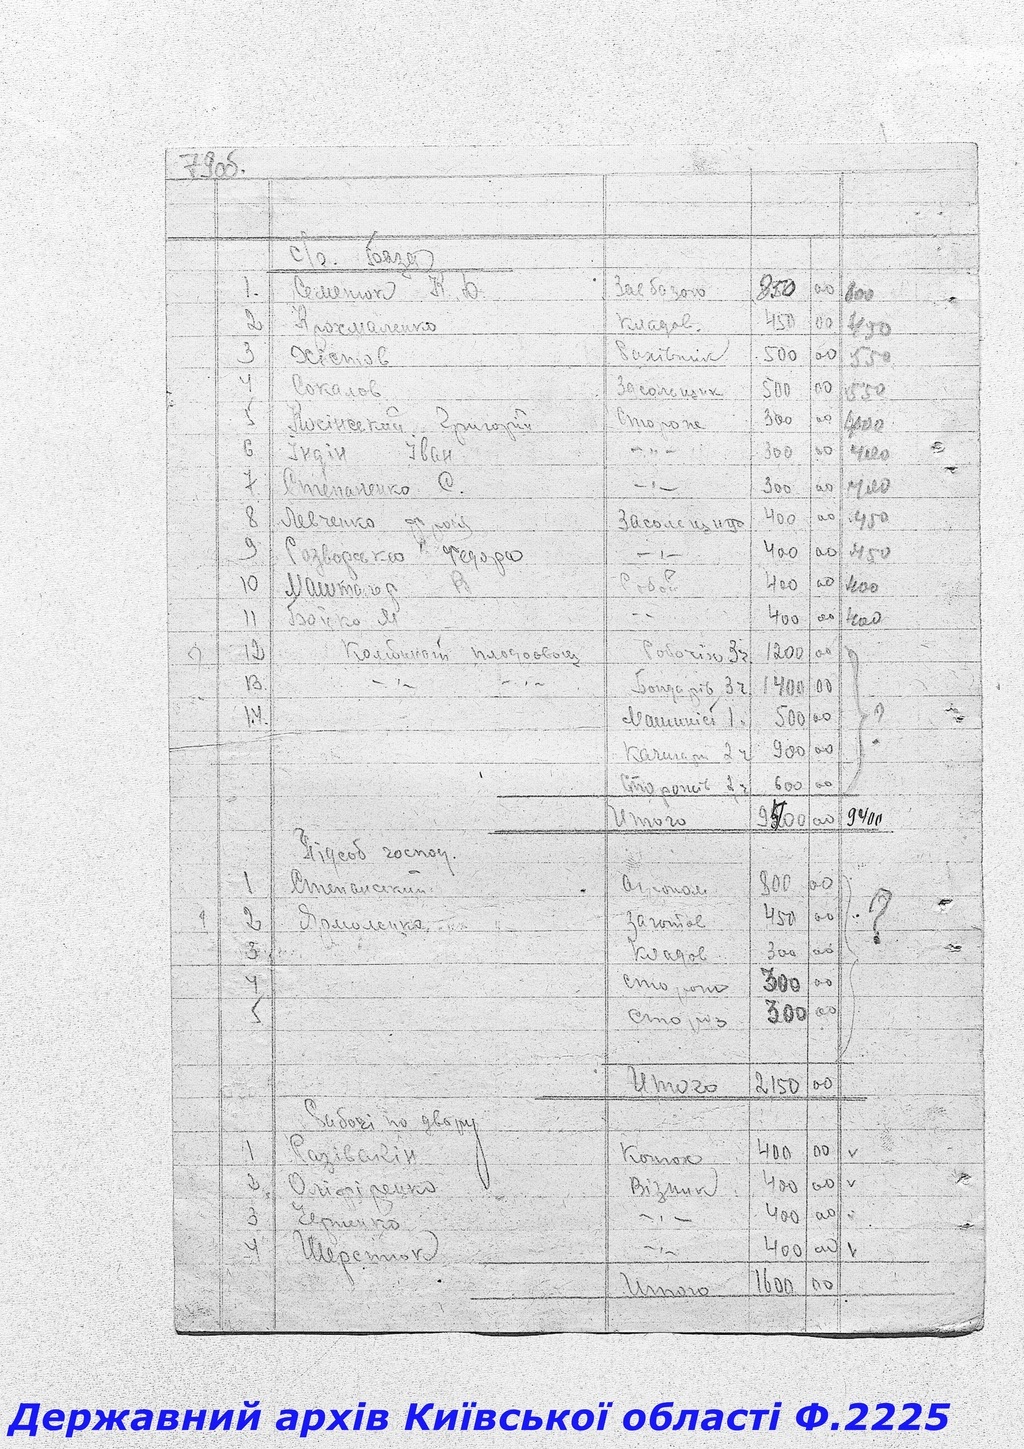 79об.
с/г. база
1. Семенюк К. О. Завбазою 850 00 800
2 Крохмаленко Кладов. 450 00 450
3 Хістов Рахівник 500 00 550
4 Соколов Засольщик 500 00 550
5 Косінский Григорий Стороже 300 00 400
6 Індін Іван -"- 300 00 400
7 Степаненко С. -"- 300 00 400
8 Левченко 400 00 450
9 Федора -"- 400 00 450
10 Маштало В Робоч 400 00 400
11 Бойко М -- 400 00 400
? 12 Робочіх 3ч. 1200 00
13. -"- -"- Бондарів 3 ч. 1400 00
14. Машиніст 1. 500 00 ?
Качегари 2 ч 900 00
Сторожів 2 ч 600 00
Итого 00 9400
Підсоб господ.
1 Степанский Агроном 800 00
2 Ярмоленко Заготов 450 00 ?
3 Кладов 300 00
4 Сторож 300 00
5 Сторож 300 00
Итого 2150 00
Рабочі по двору
1 Разівакін Конюх 400 00 v
2. Візник 400 00 v
3 -"- 400 00 v
4 Шерстюк -"- 400 00 v
Итого 1600 00
Державний архів Київської області Ф.2225